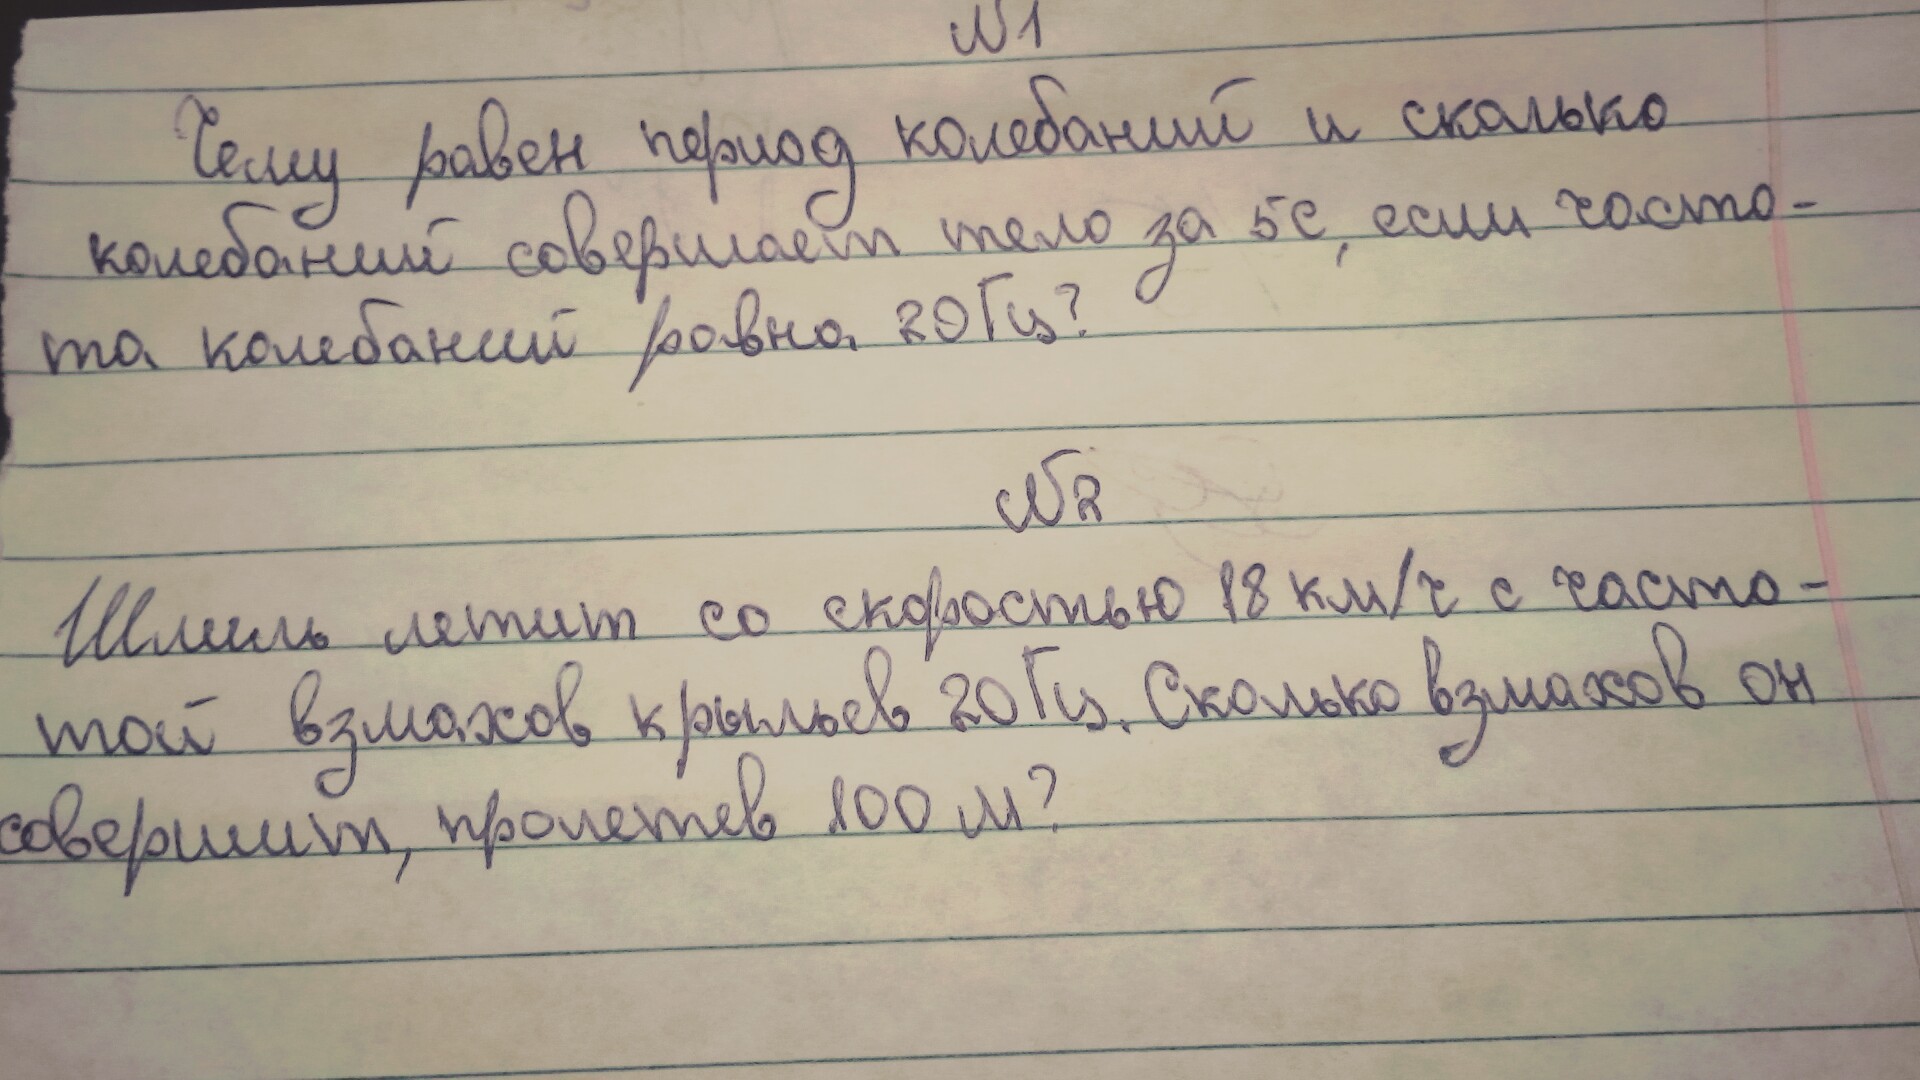 №1
Чему равен период колебаний и сколько
колебаний совершает тело за 5с, если часто-
та колебаний равна 20Гц?
№2
Шмель летит со скоростью 18 км/ч с часто-
той взмахов крыльев 20Гц. Сколько взмахов он
совершит, пролетев 100 м?